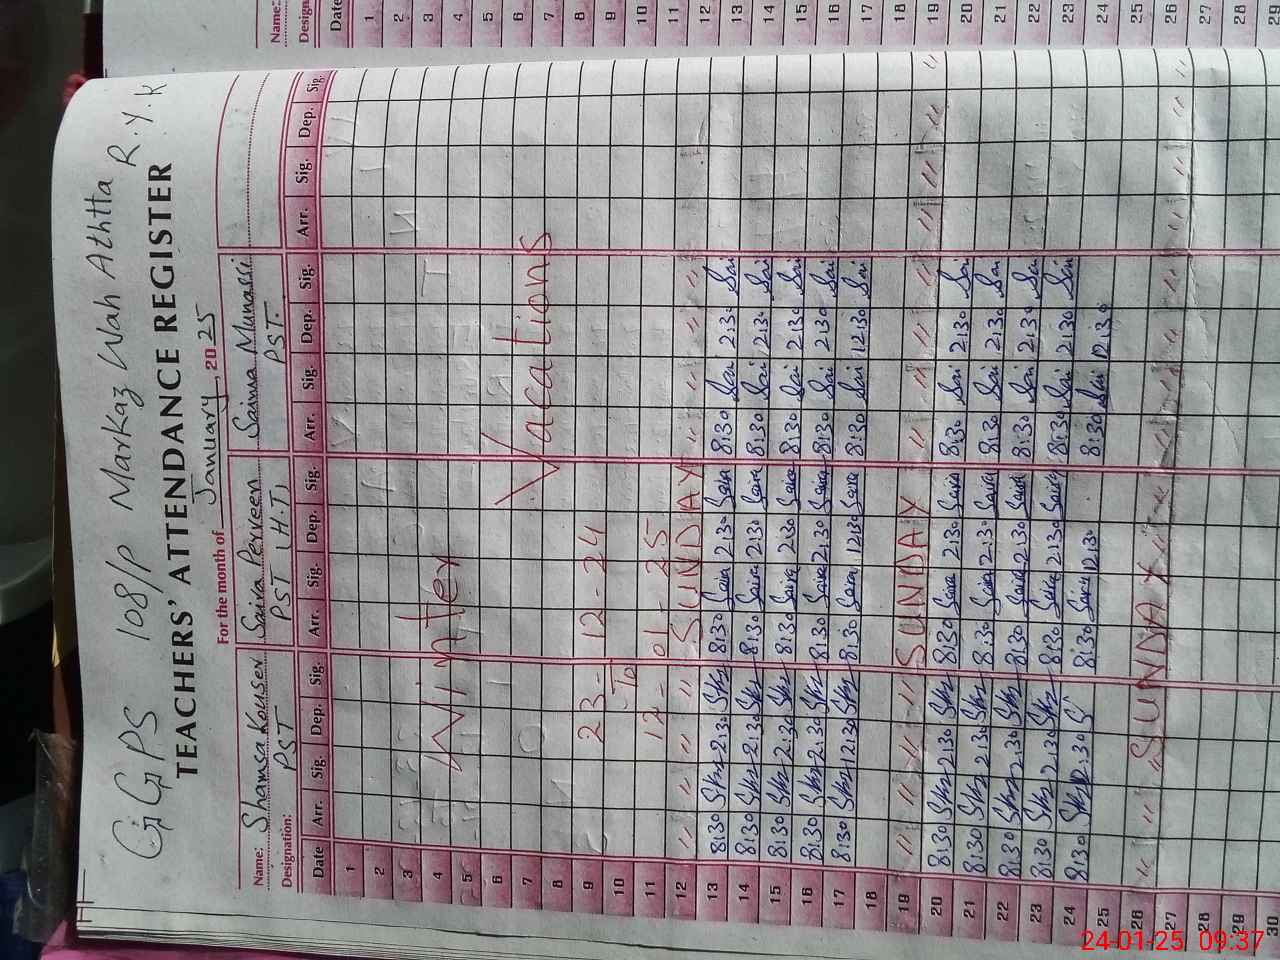 GGPS 108/P Markaz Wah Athtta R.Y.K
TEACHERS' ATTENDANCE REGISTER
For the month of January, 2025
Name: Shamsa Kouser Saira Perveen Saima Munassi
Designation: PST PST (H.T) PST.
Date Arr. Sig. Dep. Sig. Arr. Sig. Dep. Sig. Arr. Sig. Dep. Sig. Arr. Sig. Dep. Sig.
1
2
3
4 Winter
5
6
7 Vacations
8
9 23-12-24
10 To
11 12-01-25
12 " " " SUNDAY " " " "
13 8:30 2:30 8:30 Saira 2:30 Saira 8:30 Sai 2:30 Sai
14 8:30 2:30 8:30 Saira 2:30 Saira 8:30 Sai 2:30 Sai
15 8:30 2:30 8:30 Saira 2:30 Saira 8:30 Sai 2:30 Sai
16 8:30 2:30 8:30 Saira 2:30 Saira 8:30 Sai 2:30 Sai
17 8:30 12:30 8:30 Saira 12:30 Saira 8:30 Sai 12:30 Sai
18
19 " " " " SUNDAY " " " " " " " "
20 8:30 2:30 8:30 Saira 2:30 Saira 8:30 Sai 2:30 Sai
21 8:30 2:30 8:30 Saira 2:30 Saira 8:30 Sai 2:30 Sai
22 8:30 2:30 8:30 Saira 2:30 Saira 8:30 Sai 2:30 Sai
23 8:30 2:30 8:30 Saira 2:30 Saira 8:30 Sai 2:30 Sai
24 8:30 12:30 8:30 Saira 12:30 8:30 Sai 12:30
25
26 " " " SUNDAY " " " " " " " "
27
28
29
30
Name:
Design
Date
1
2
3
4
5
6
7
8
9
10
11
12
13
14
15
16
17
18
19
20
21
22
23
24
25
26
27
28
29
24-01-25 09:37